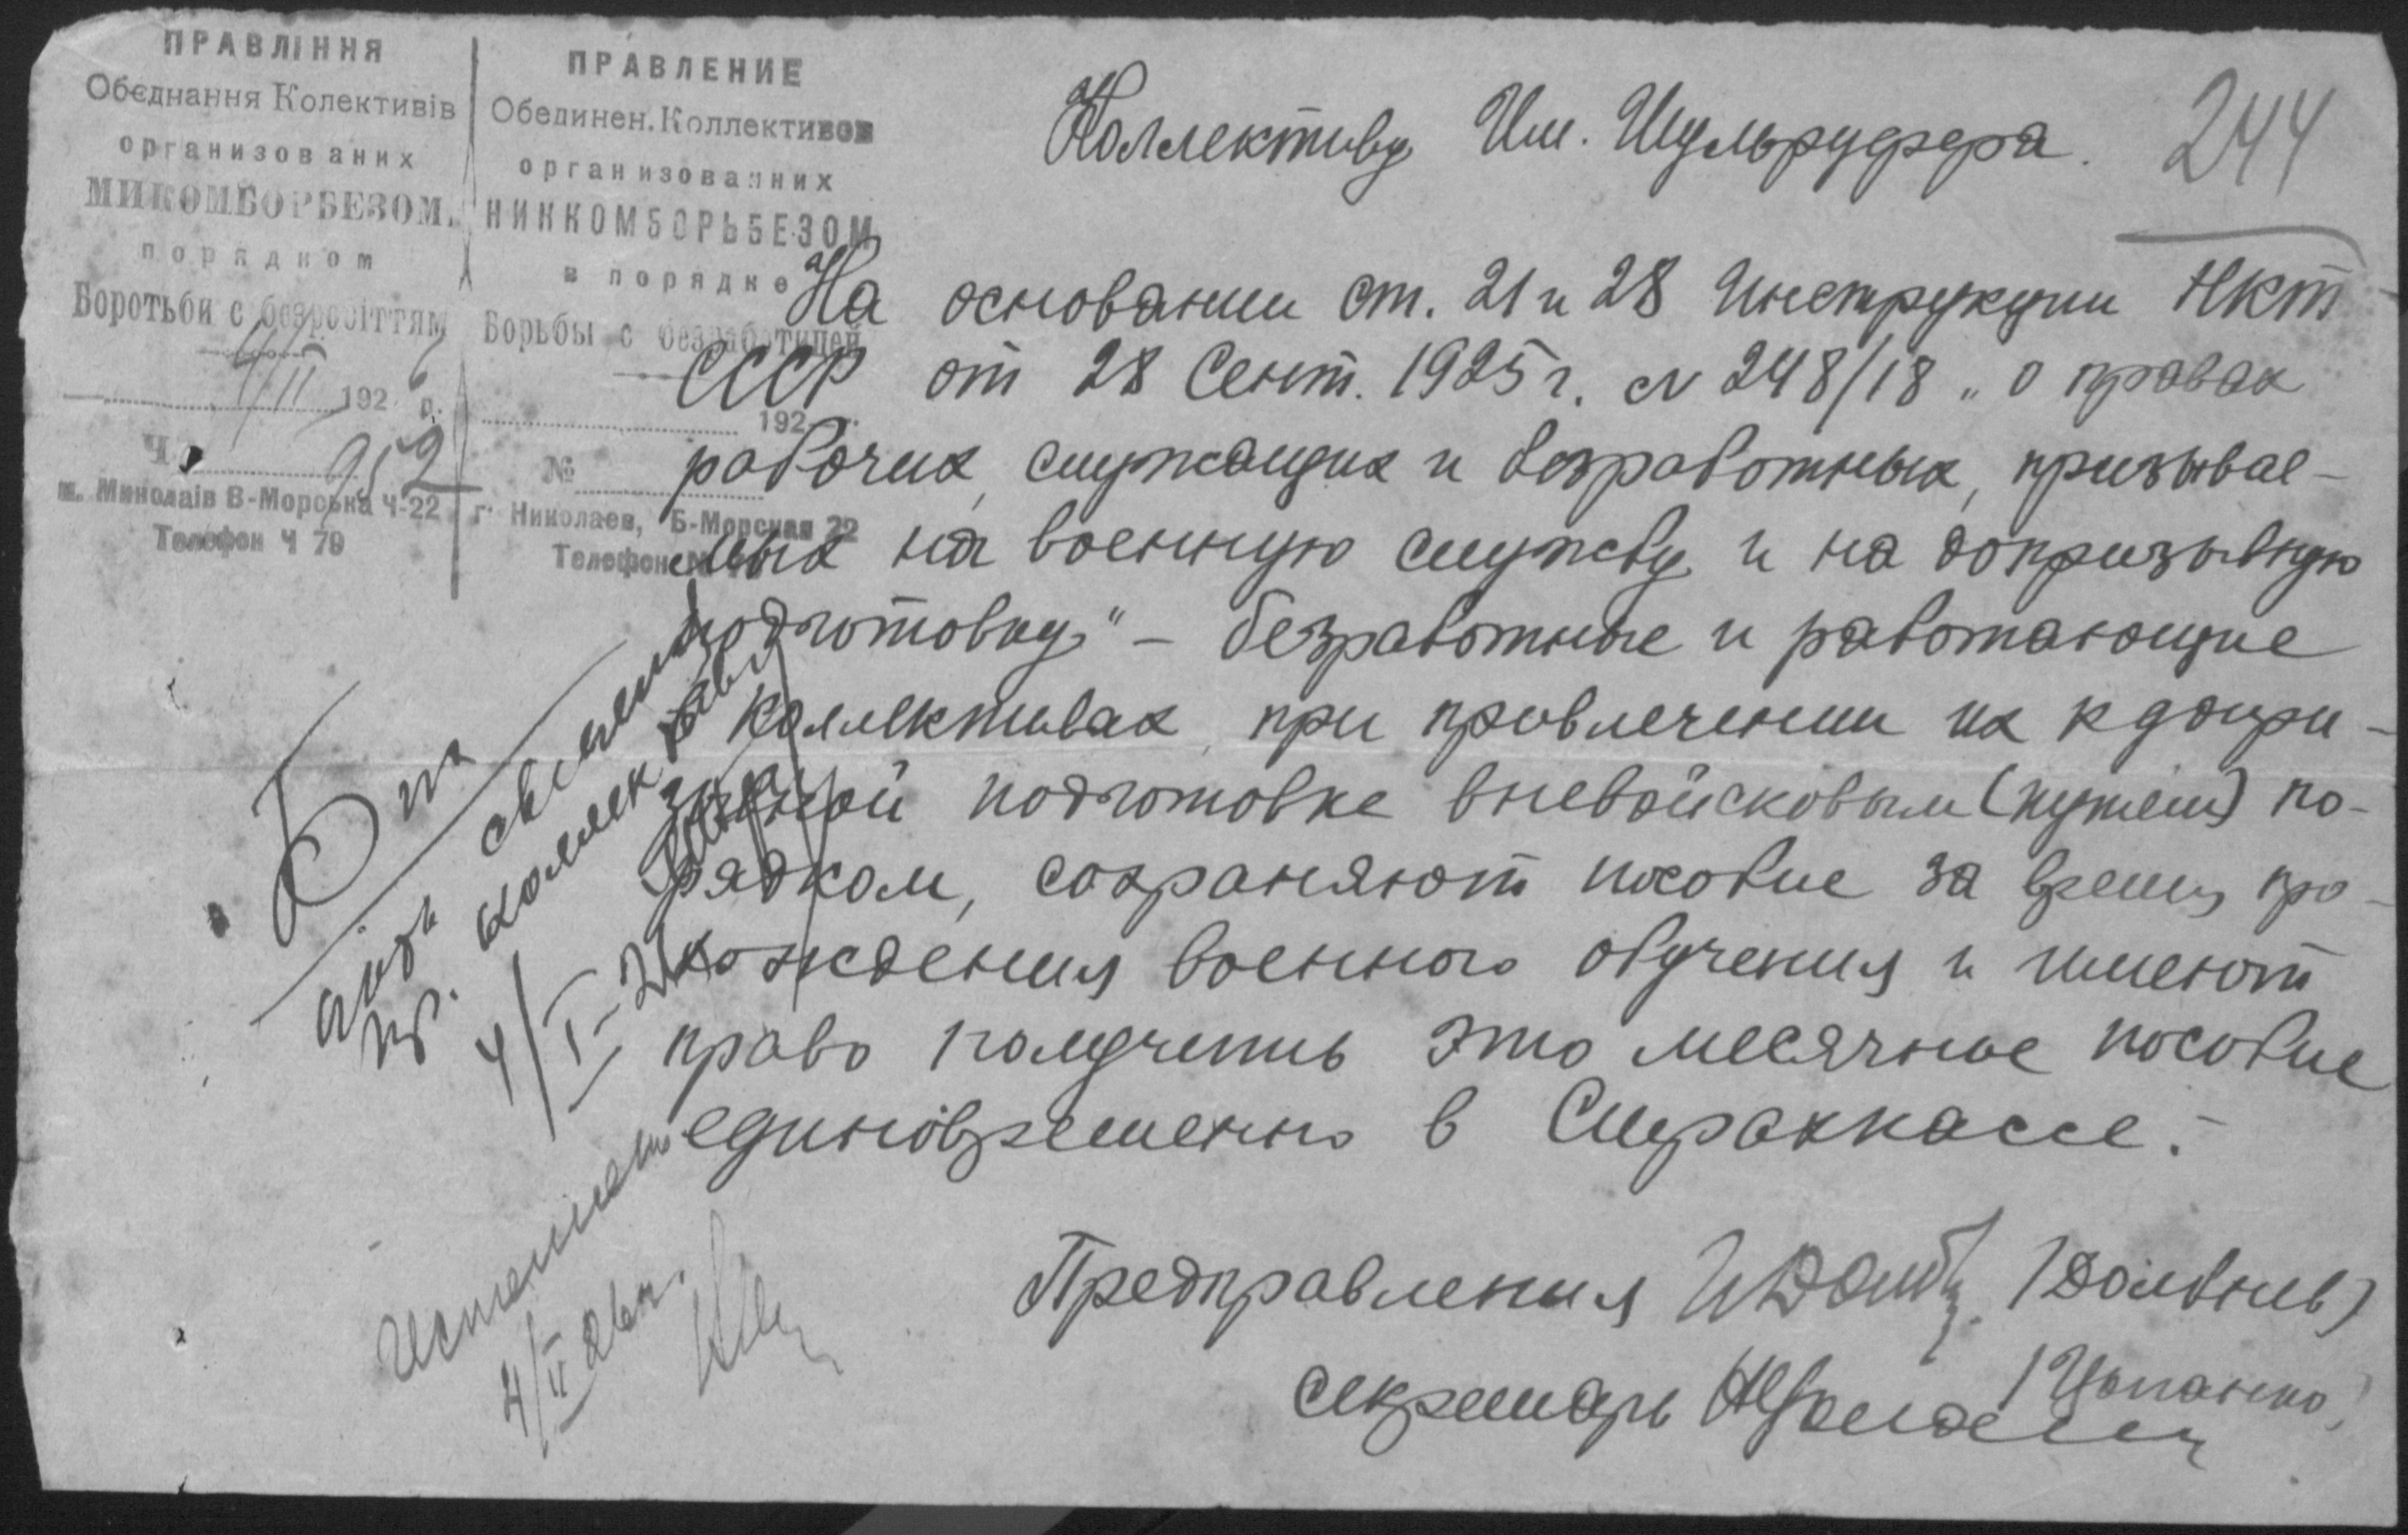 ПРАВЛІННЯ
Обєднання Колективів
организованих
МИКОМБОРБЕЗОМ.
порядком
Боротьби с безробіттям
4/II 1926 р.
Ч. 952
м. Миколаів В-Морська Ч-22
Телефон Ч 79
ПРАВЛЕНИЕ
Обединен. Коллективов
организованних
НИККОМБОРЬБЕЗОМ
в порядке
Борьбы с безработицей
192 г.
№
г. Николаев, Б-Морская 22
Телефон №
244
Коллективу Им. Шульруфера.
На основании ст. 21 и 28 Инструкции НКТ
СССР от 28 Сент. 1925 г. N 248/18 „о правах
рабочих, служащих и безработных, призывае-
мых на военную службу и на допризывную
подготовку" – безработные и работающие
в коллективах, при привлечении их к допри-
зывной подготовке вневойсковым (путем) по-
рядком, сохраняют пособие за время про-
хождения военного обучения и имеют
право получить это месячное пособие
единовременно в Страхкассе.-
Предправления
Секретарь
4/II 26 г.